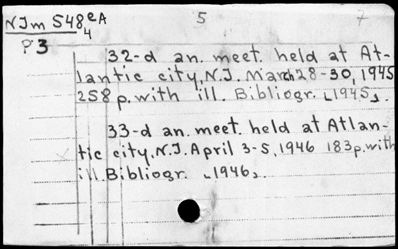 NJm 548 eA
4
5
7
P3
32-d an. meet. held at At-
lantic city, N.J. March 28-30, 1945
258 p. with ill. Bibliogr. [1945].
33-d an. meet. held at Atlan-
tic city, N.J. April 3-5, 1946 183 p. with
ill. Bibliogr. [1946].